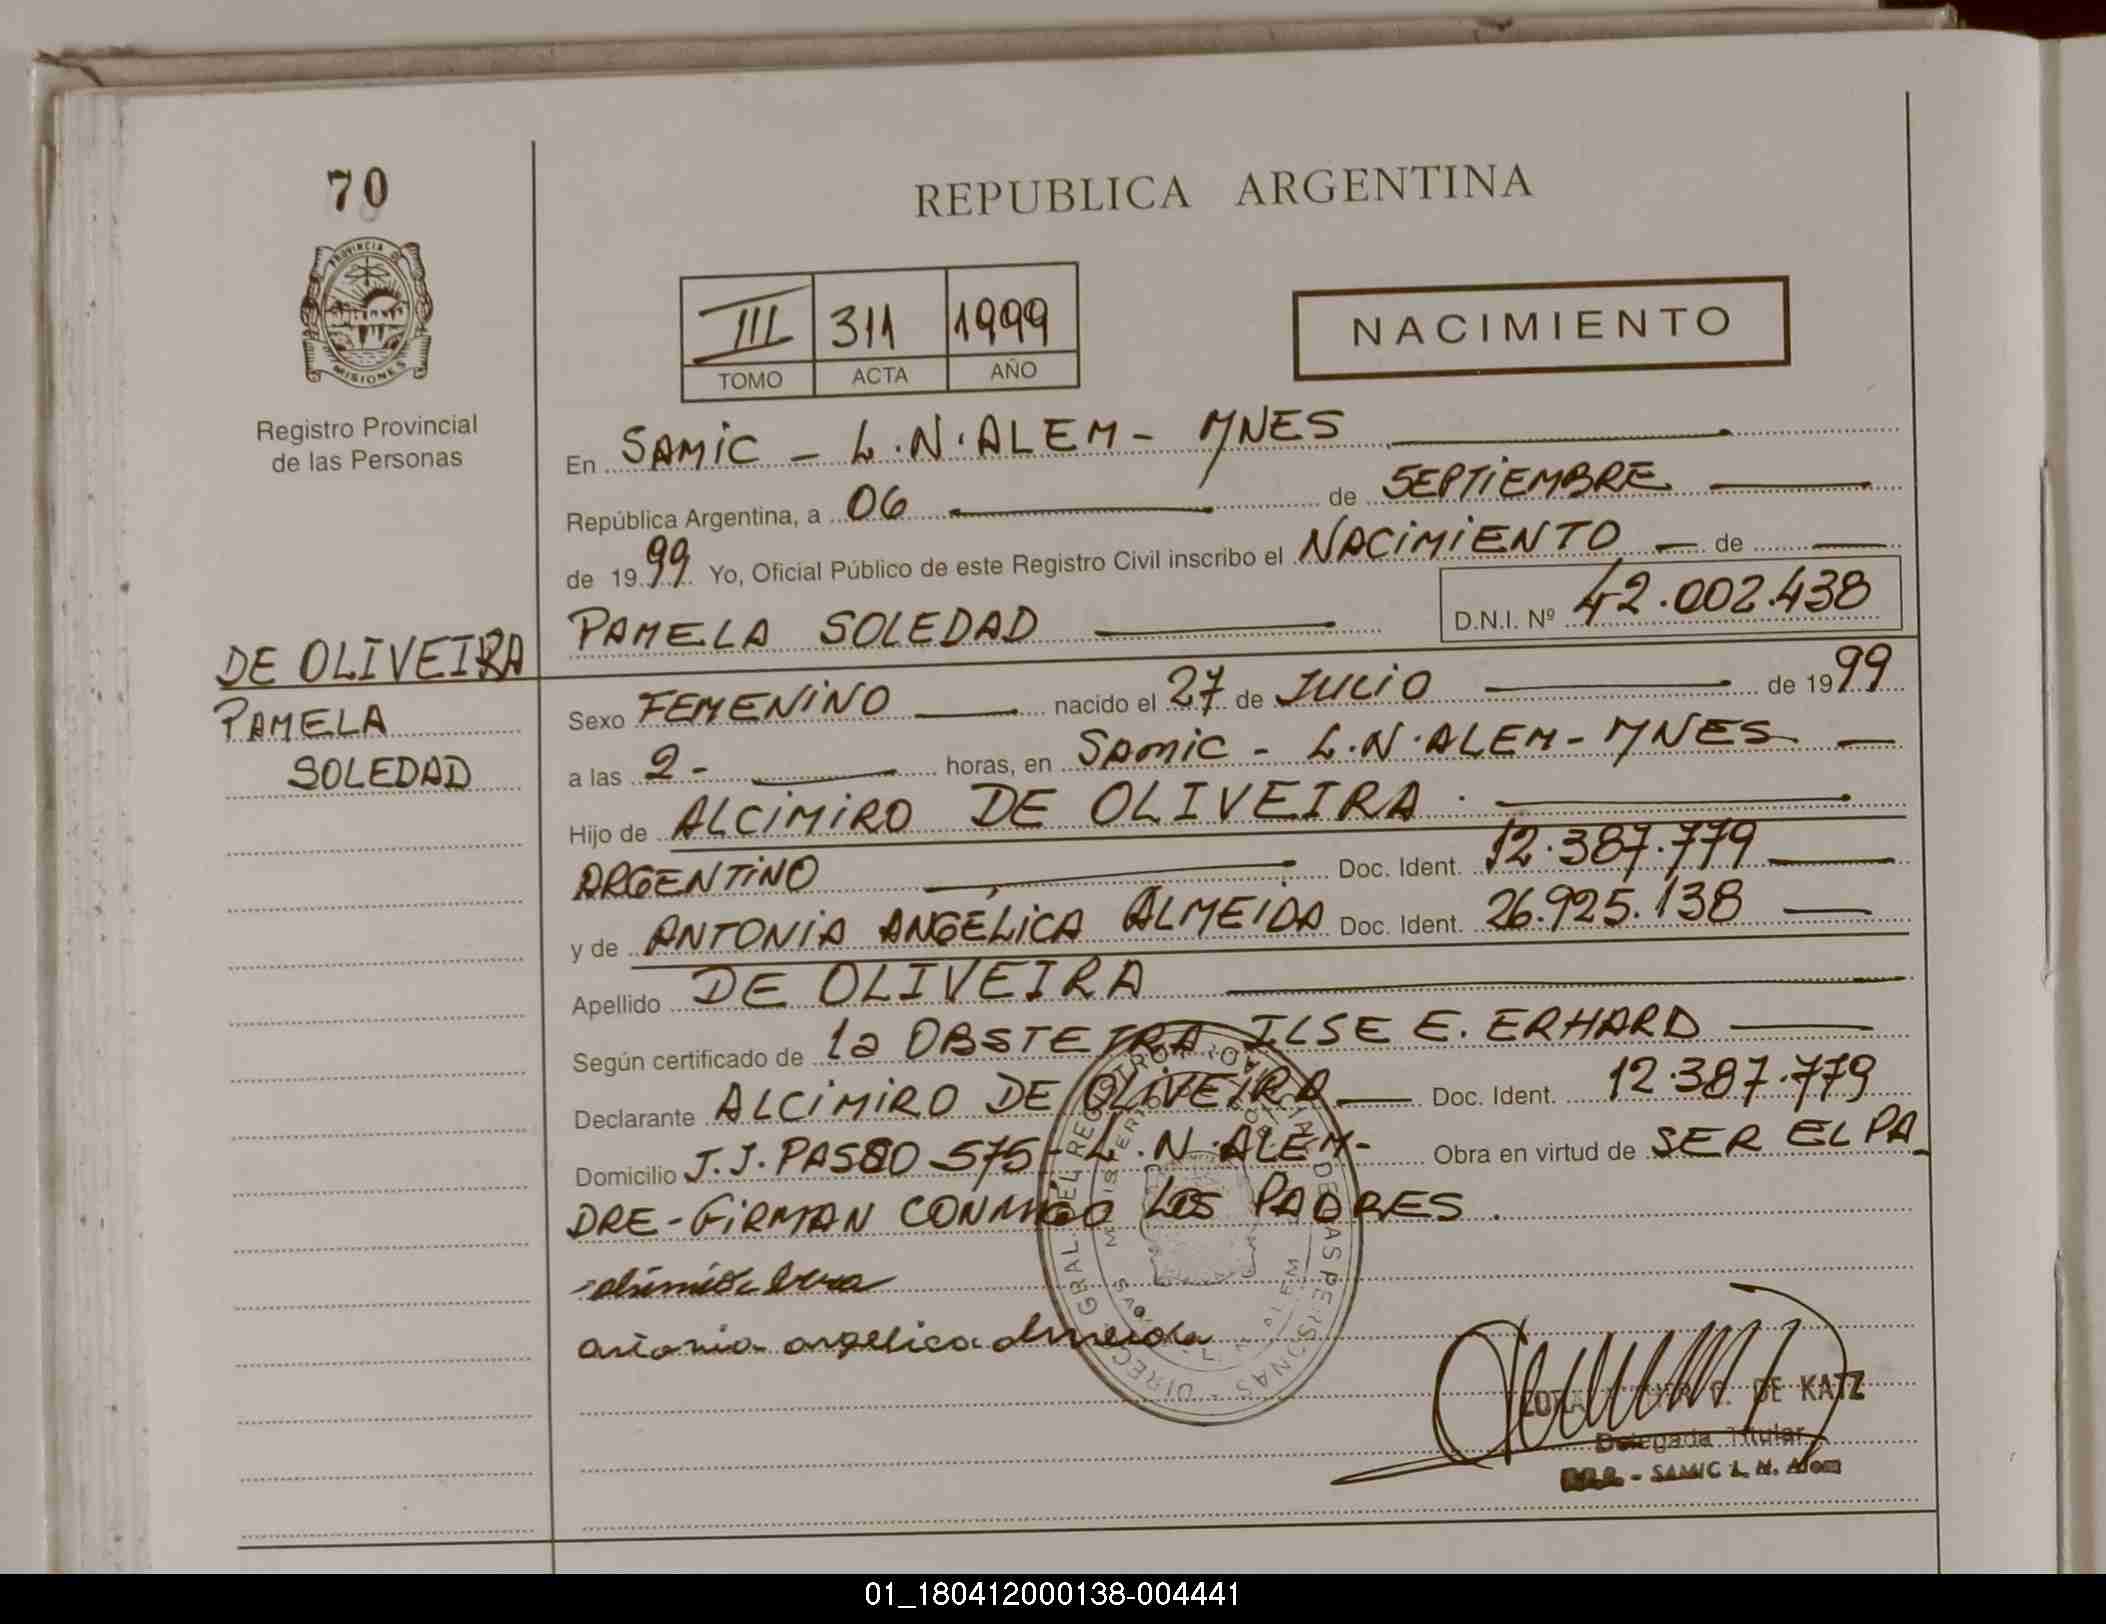 70
REPUBLICA ARGENTINA
PROVINCIA DE
MISIONES
Registro Provincial
de las Personas
III 311 1999
TOMO ACTA AÑO
NACIMIENTO
En SAMIC - L.N.ALEM - MNES
República Argentina, a 06 de SEPTIEMBRE
de 1999 Yo, Oficial Público de este Registro Civil inscribo el NACIMIENTO de
PAMELA SOLEDAD D.N.I. Nº 42.002.438
DE OLIVEIRA
PAMELA
SOLEDAD
Sexo FEMENINO nacido el 27 de JULIO de 1999
a las 2- horas, en SAMIC - L.N.ALEM - MNES
Hijo de ALCIMIRO DE OLIVEIRA
ARGENTINO Doc. Ident. 12.387.779
y de ANTONIA ANGÉLICA ALMEIDA Doc. Ident. 26.925.138
Apellido DE OLIVEIRA
Según certificado de la OBSTETRA ILSE E. ERHARD
Declarante ALCIMIRO DE OLIVEIRA Doc. Ident. 12.387.779
Domicilio J.J. PASSO 575 - L.N.ALEM- Obra en virtud de SER EL PA-
DRE - FIRMAN CONMIGO LOS PADRES.
antonia angelica almeida
DE KATZ
Delegada Titular
- SAMIC L. N. Alem
01_180412000138-004441